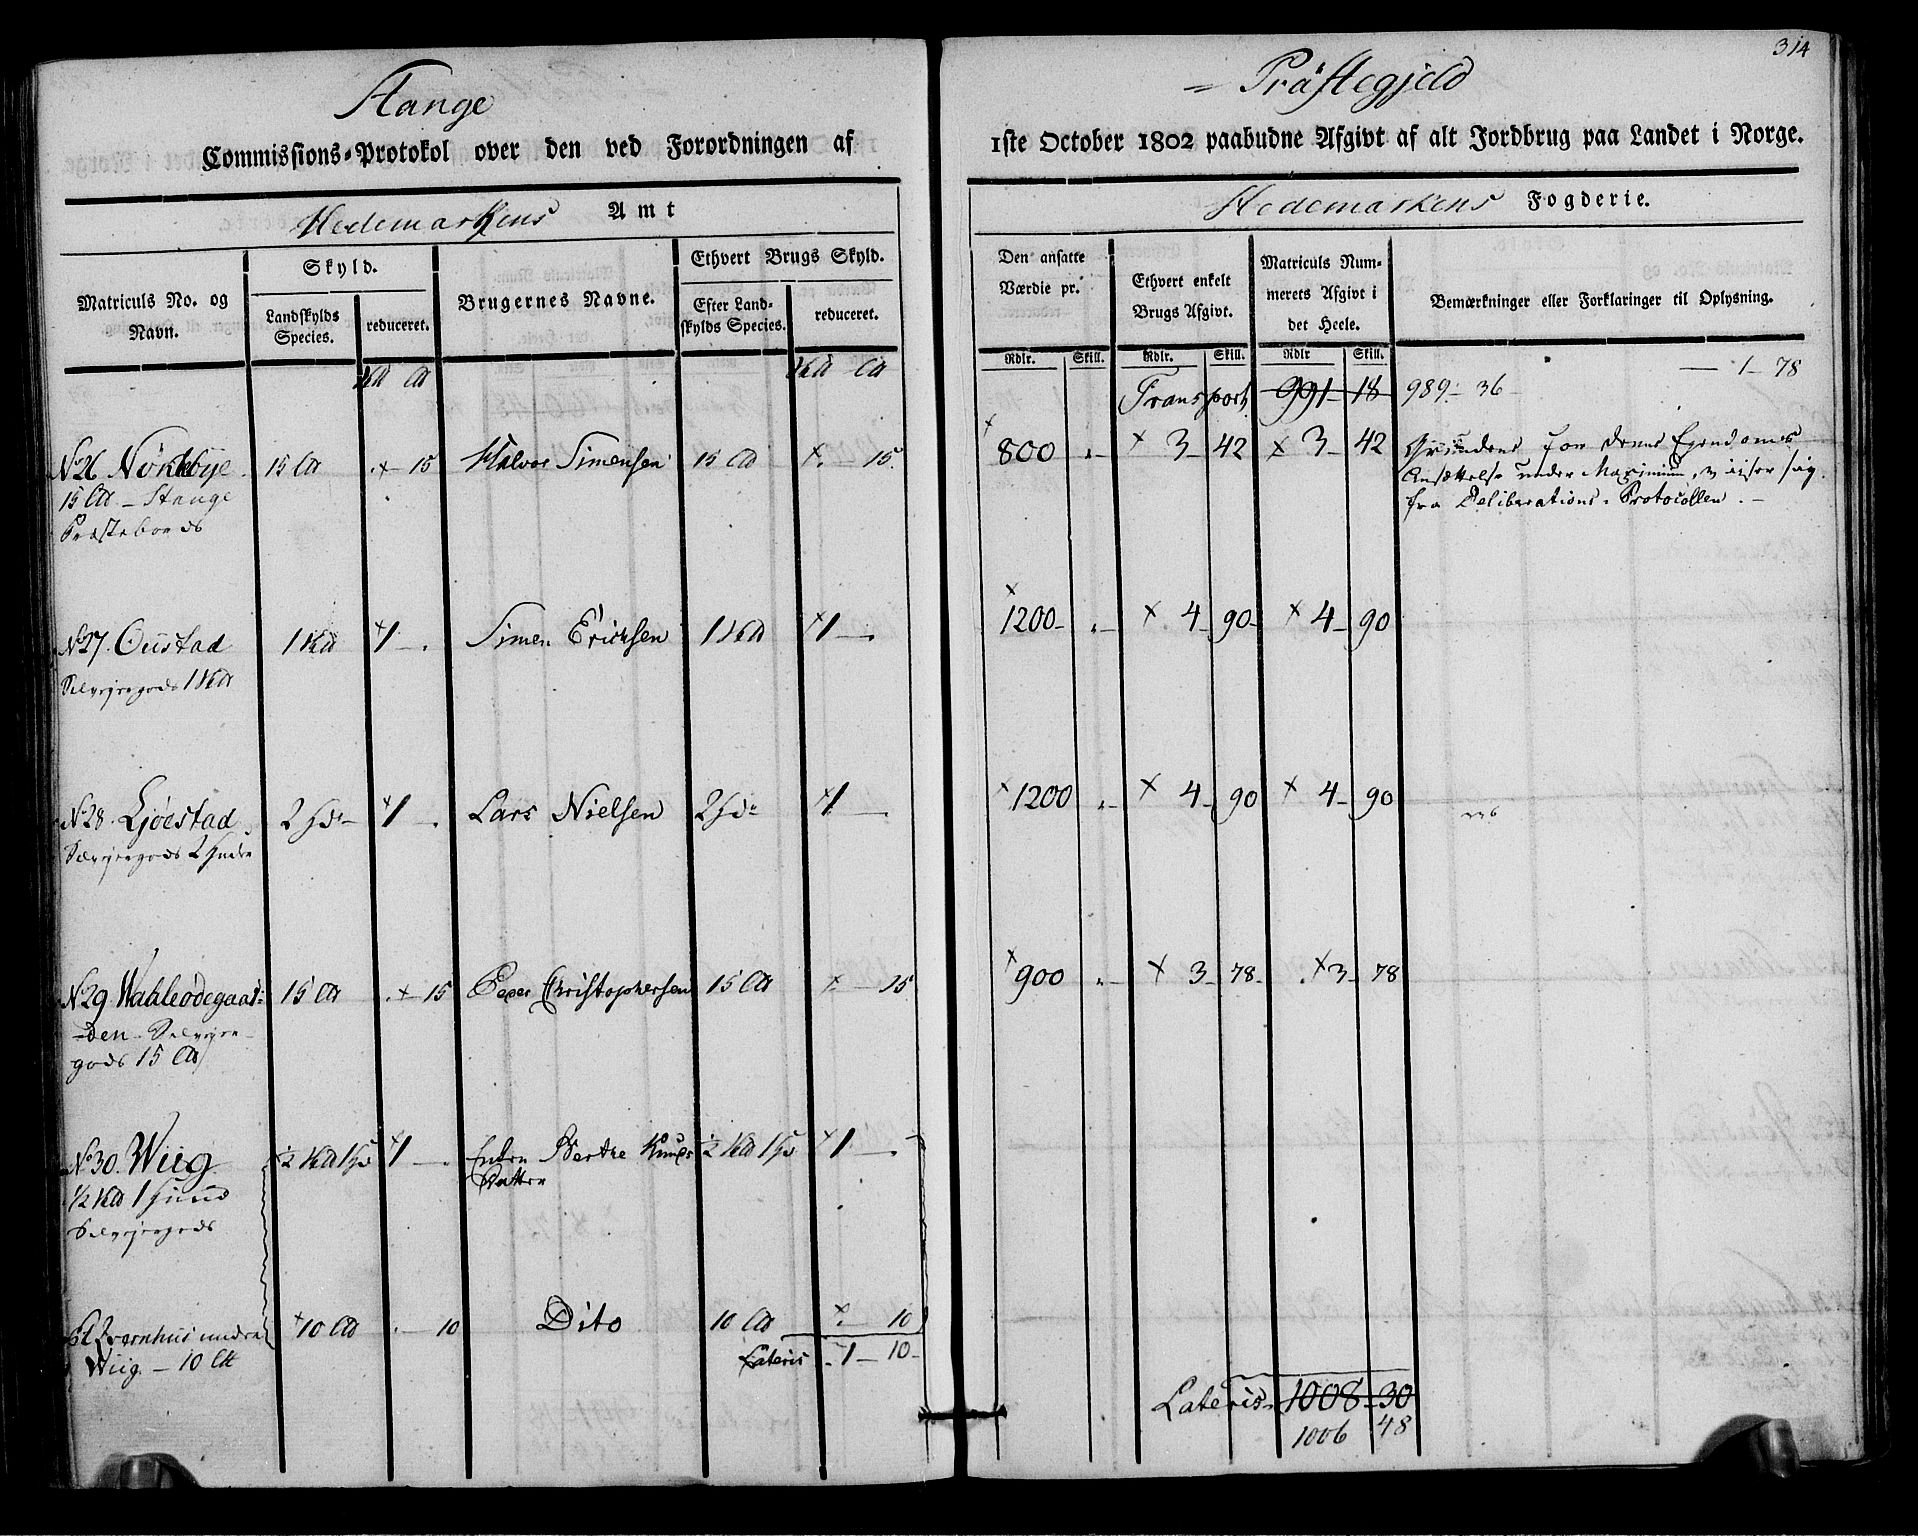 314
Stange
= Præstegjeld
Commissions-Protokol over den ved Forordningen af
1ste October 1802 paabudne Afgivt af alt Jordbrug paa Landet i Norge.
Hedemarkens Amt
Hedemarkens Fogderie.
Matriculs No. og Navn.
Skyld.
Landskylds Species.
reduceret.
Brugernes Navne.
Ethvert Brugs Skyld.
Efter Landskylds Species.
reduceret.
Den ansatte Værdie pr.
Ethvert enkelt Brugs Afgivt.
Matriculs Nummerets Afgivt i det Heele.
Bemærkninger eller Forklaringer til Oplysning.
Rdlr. Skill. Rdlr. Skill. Rdlr Skill.
Transport 991 - 18 989 - 36 -
— 1 - 78
No 26 Nørkbye 15 Ct × 15 Halvor Simensen 15 Ct × 15. × 800 - × 3 - 42 × 3 - 42 Grunden for denne Ejendoms
15 Ct - Stange Ansættelse under Maximum, udviser sig
Præstebords fra Deliberations-Protocollen. -
No 27. Gustad 1 × 1 - . Simen Ericksen 1 × 1 - . × 1200 - × 4 - 90 - × 4 - 90
Selvejergods 1
No 28. Gjøestad 2 Hde × 1 - . Lars Nielsen 2 Hde × 1 - . × 1200 - × 4 - 90 × 4 - 90
Selvejergods 2 Huder
No 29. Wahleødegaar- 15 Ct × 15 Peder Christophersen 15 Ct × - 15 × 900 - × 3 - 78 - × 3 - 78
den - Selvejer-
gods 15 Ct
No 30. Wiig ½ 1 Hd × 1 - . Enken Berthe Knuds ½ 1 Hd × 1 - .
½ 1 Huud Datter
Selvejergods
Et Qvernhus under × 10 Ct - 10 Dito 10 Ct × - 10
Wiig - 10 Ct Lateris - 1 - 10 -
Lateris - 1008 - 30
1006 48